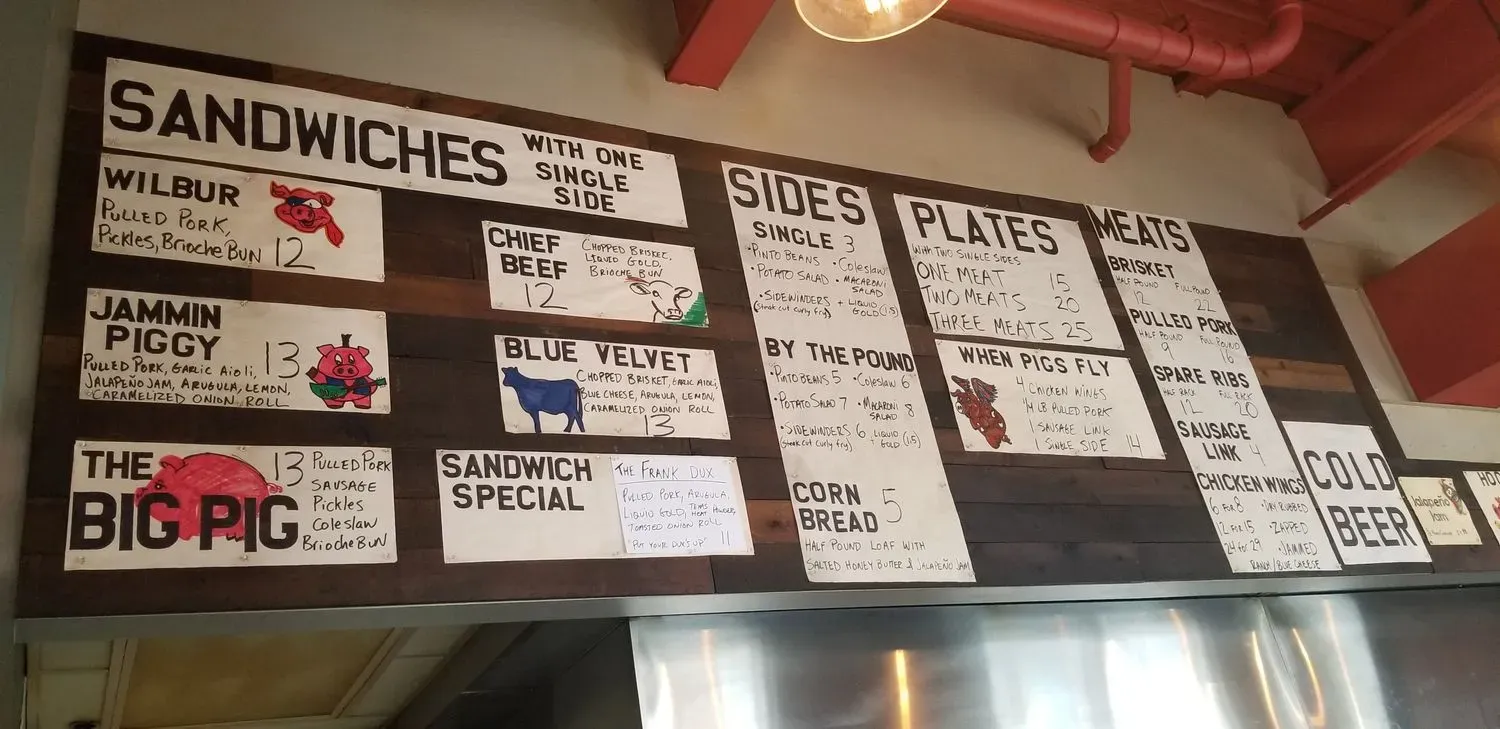 SANDWICHES
WITH ONE
SINGLE
SIDE
WILBUR
PULLED PORK,
Pickles, Brioche Bun 12
CHIEF
BEEF
12
CHOPPED BRISKET,
LIQUID GOLD,
BRIOCHE BUN
JAMMIN
PIGGY
13
PULLED PORK, GARLIC AIOLI,
JALAPEÑO JAM, ARUGULA, LEMON,
CARAMELIZED ONION ROLL
BLUE VELVET
CHOPPED BRISKET, GARLIC AIOLI,
BLUE CHEESE, ARUGULA, LEMON,
CARAMELIZED ONION ROLL
13
THE
BIG PIG
13
PULLED PORK
SAUSAGE
Pickles
Coleslaw
Brioche Bun
SANDWICH
SPECIAL
THE FRANK DUX
PULLED PORK, ARUGULA,
LIQUID GOLD, TEXAS HEAT POWDER,
TOASTED ONION ROLL
"PUT YOUR DUX'S UP" 11
SIDES
SINGLE 3
•PINTO BEANS •Coleslaw
•POTATO SALAD •MACARONI
SALAD
•SIDEWINDERS + LIQUID
(steak cut curly fry) GOLD (1.5)
BY THE POUND
•PINTO BEANS 5 •Coleslaw 6
•POTATO SALAD 7 •MACARONI
SALAD 8
•SIDEWINDERS 6 + LIQUID
(steak cut curly fry) GOLD (1.5)
CORN
BREAD 5
HALF POUND LOAF WITH
SALTED HONEY BUTTER & JALAPEÑO JAM
PLATES
WITH TWO SINGLE SIDES
ONE MEAT 15
TWO MEATS 20
THREE MEATS 25
WHEN PIGS FLY
4 CHICKEN WINGS
1/4 LB PULLED PORK
1 SAUSAGE LINK
1 SINGLE SIDE 14
MEATS
BRISKET
HALF POUND FULL POUND
12 22
PULLED PORK
HALF POUND FULL POUND
9 16
SPARE RIBS
HALF RACK FULL RACK
12 20
SAUSAGE
LINK 4
CHICKEN WINGS
6 FOR 8 •DRY RUBBED
12 FOR 15 •ZAPPED
24 FOR 29 •JAMMED
RANCH / BLUE CHEESE
COLD
BEER
Jalapeño
Jam
HO